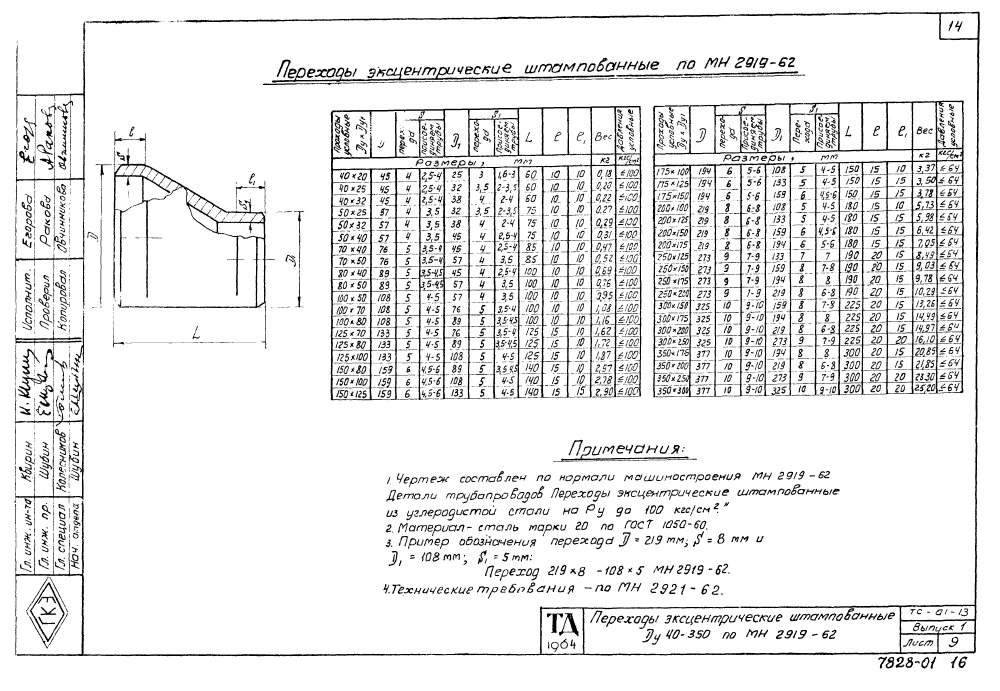 14
Переходы эксцентрические штампованные по МН 2919-62
Переходы условные Ду × Ду1 | D | S перехода | S присоединяем. трубы | D1 | S1 перехода | S1 присоединяем. трубы | L | ℓ | ℓ1 | Вес | Давления условные
Размеры, мм | кг | кгс/см2
40×20 45 4 2,5-4 25 3 1,6-3 60 10 10 0,18 ≤100
40×25 45 4 2,5-4 32 3,5 2-3,5 60 10 10 0,20 ≤100
40×32 45 4 2,5-4 38 4 2-4 60 10 10 0,22 ≤100
50×25 57 4 3,5 32 3,5 2-3,5 75 10 10 0,27 ≤100
50×32 57 4 3,5 38 4 2-4 75 10 10 0,29 ≤100
50×40 57 4 3,5 45 4 2,5-4 75 10 10 0,31 ≤100
70×40 76 5 3,5-4 45 4 2,5-4 85 10 10 0,47 ≤100
70×50 76 5 3,5-4 57 4 3,5 85 10 10 0,52 ≤100
80×40 89 5 3,5-4,5 45 4 2,5-4 100 10 10 0,69 ≤100
80×50 89 5 3,5-4,5 57 4 3,5 100 10 10 0,76 ≤100
100×50 108 5 4-5 57 4 3,5 100 10 10 0,95 ≤100
100×70 108 5 4-5 76 5 3,5-4 100 10 10 1,08 ≤100
100×80 108 5 4-5 89 5 3,5-4,5 100 10 10 1,16 ≤100
125×70 133 5 4-5 76 5 3,5-4 125 15 10 1,62 ≤100
125×80 133 5 4-5 89 5 3,5-4,5 125 15 10 1,72 ≤100
125×100 133 5 4-5 108 5 4-5 125 15 10 1,87 ≤100
150×80 159 6 4,5-6 89 5 3,5-4,5 140 15 10 2,57 ≤100
150×100 159 6 4,5-6 108 5 4-5 140 15 10 2,78 ≤100
150×125 159 6 4,5-6 133 5 4-5 140 15 15 2,90 ≤100
Переходы условные Ду × Ду1 | D | S перехода | S присоединяем. трубы | D1 | S1 перехода | S1 присоединяем. трубы | L | ℓ | ℓ1 | Вес | Давления условные
Размеры, мм | кг | кгс/см2
175×100 194 6 5-6 108 5 4-5 150 15 10 3,37 ≤64
175×125 194 6 5-6 133 5 4-5 150 15 15 3,50 ≤64
175×150 194 6 5-6 159 6 4,5-6 150 15 15 3,78 ≤64
200×100 219 8 6-8 108 5 4-5 180 15 10 5,73 ≤64
200×125 219 8 6-8 133 5 4-5 180 15 15 5,98 ≤64
200×150 219 8 6-8 159 6 4,5-6 180 15 15 6,42 ≤64
200×175 219 8 6-8 194 6 5-6 180 15 15 7,05 ≤64
250×125 273 9 7-9 133 7 7 190 20 15 8,49 ≤64
250×150 273 9 7-9 159 8 7-8 190 20 15 9,03 ≤64
250×175 273 9 7-9 194 8 8 190 20 15 9,78 ≤64
250×200 273 9 7-9 219 8 6-8 190 20 15 10,29 ≤64
300×150 325 10 9-10 159 8 7-8 225 20 15 13,26 ≤64
300×175 325 10 9-10 194 8 8 225 20 15 14,49 ≤64
300×200 325 10 9-10 219 8 6-8 225 20 15 14,97 ≤64
300×250 325 10 9-10 273 9 7-9 225 20 20 16,10 ≤64
350×175 377 10 9-10 194 8 8 300 20 15 20,85 ≤64
350×200 377 10 9-10 219 8 6-8 300 20 15 21,85 ≤64
350×250 377 10 9-10 273 9 7-9 300 20 20 23,30 ≤64
350×300 377 10 9-10 325 10 9-10 300 20 20 25,20 ≤64
ℓ
S
ℓ1
S1
D
D1
L
Примечания:
1. Чертеж составлен по нормали машиностроения МН 2919-62
Детали трубапроводов Переходы эксцентрические штампованные
из углеродистой стали на Ру до 100 кгс/см2."
2. Материал - сталь марки 20 по ГОСТ 1050-60.
3. Пример обозначения перехода D = 219 мм; S = 8 мм и
D1 = 108 мм; S1 = 5 мм:
Переход 219×8 - 108×5 МН 2919-62.
4. Технические требования - по МН 2921-62.
ТД
1964
Переходы эксцентрические штампованные
Ду 40-350 по МН 2919-62
ТС-01-13
Выпуск 1
Лист 9
7828-01 16
Исполнит. Егорова
Проверил Ракова
Копировал Овчинникова
Гл. инж. ин-та Кварин
Гл. инж. пр. Шубин
Гл. специал Колесников
Нач. отдела Шубин